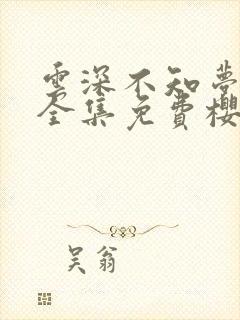 雲深不知夢
全集免費櫻
吴翁